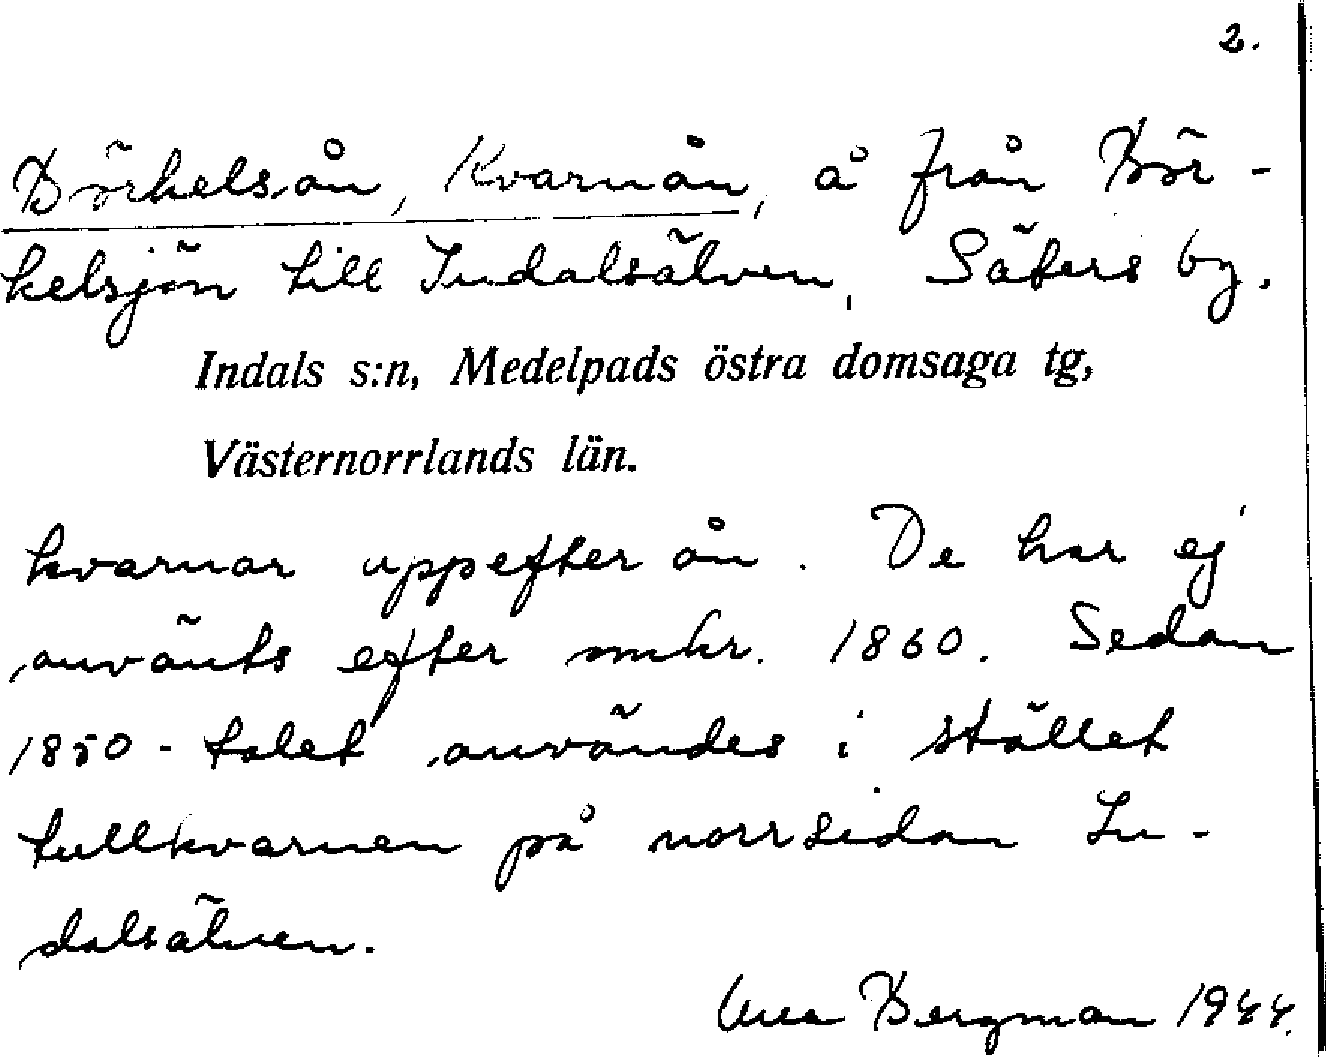 2.
Börkelsån, Kvarnån, å från Bör-
kelsjön till Indalsälven, Säters by.
Indals s:n, Medelpads östra domsaga tg,
Västernorrlands län.
kvarnar uppefter ån. De har ej
använts efter omkr. 1860. Sedan
1850-talet användes i stället
tullkvarnen på norrsidan In-
dalsälven.
Bergman 1944.